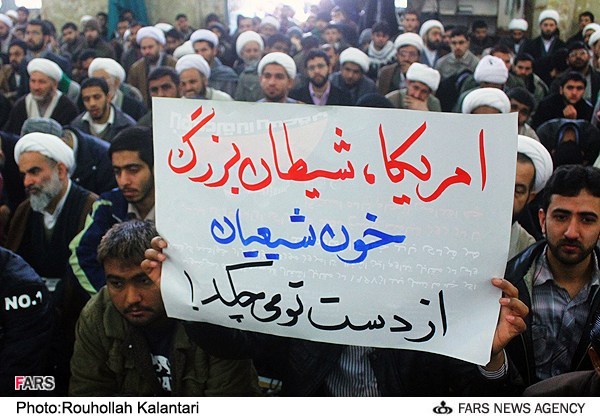 امریکا، شیطان بزرگ
خون شیعیان
از دست تو می چکد!
NO.1
FARS
Photo:Rouhollah Kalantari
FARS NEWS AGENCY